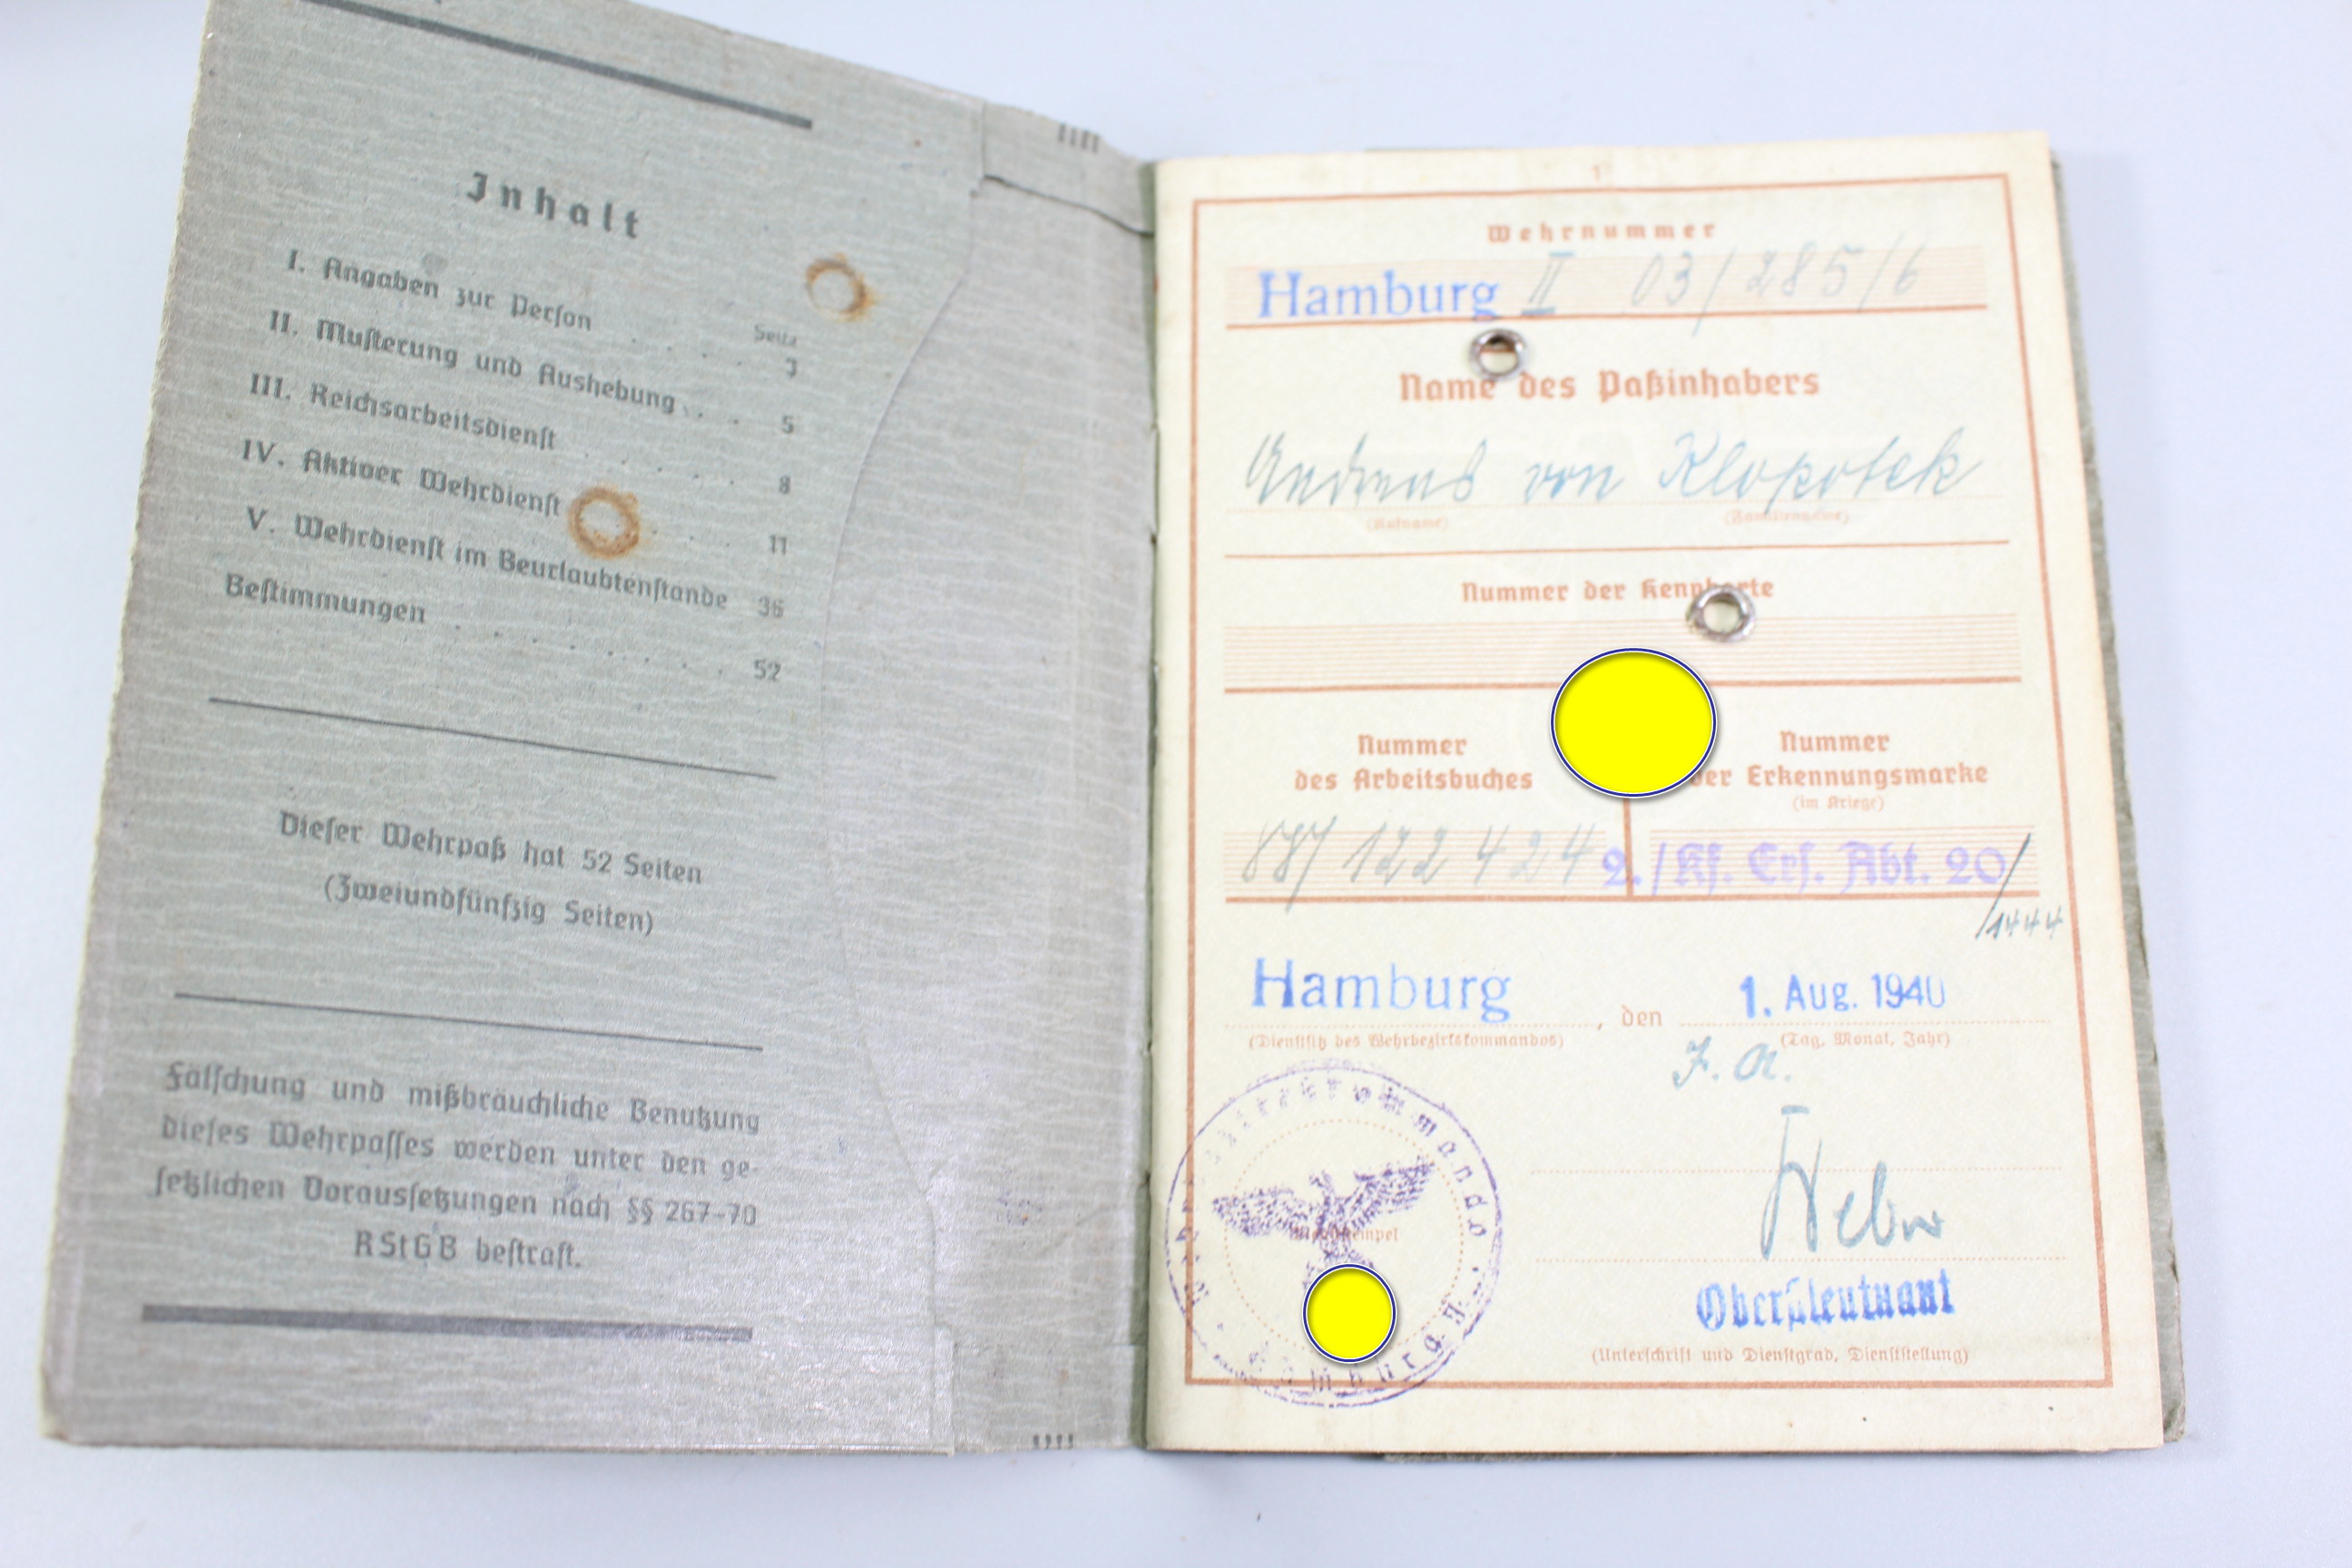 Inhalt
Seite
I. Angaben zur Person . . . . 3
II. Musterung und Aushebung . . . 5
III. Reichsarbeitsdienst . . . . . . 8
IV. Aktiver Wehrdienst . . . 11
V. Wehrdienst im Beurlaubtenstande 36
Bestimmungen . . . . . . . . 52
Dieser Wehrpaß hat 52 Seiten
(Zweiundfünfzig Seiten)
Fälschung und mißbräuchliche Benutzung
dieses Wehrpasses werden unter den ge-
setzlichen Voraussetzungen nach §§ 267-70
RStGB bestraft.
1
Wehrnummer
Hamburg II 03/285/6
Name des Paßinhabers
Andreas von Klopotek
(Rufname) (Familienname)
Nummer der Kennkarte
Nummer
des Arbeitsbuches
Nummer
der Erkennungsmarke
(im Kriege)
122 424
2./Kf. Ers. Abt. 20/
1444
Hamburg, den 1. Aug. 1940
(Dienstsitz des Wehrbezirkskommandos) (Tag, Monat, Jahr)
J. A.
Oberstleutnant
(Unterschrift und Dienstgrad, Dienststellung)
Hamburg